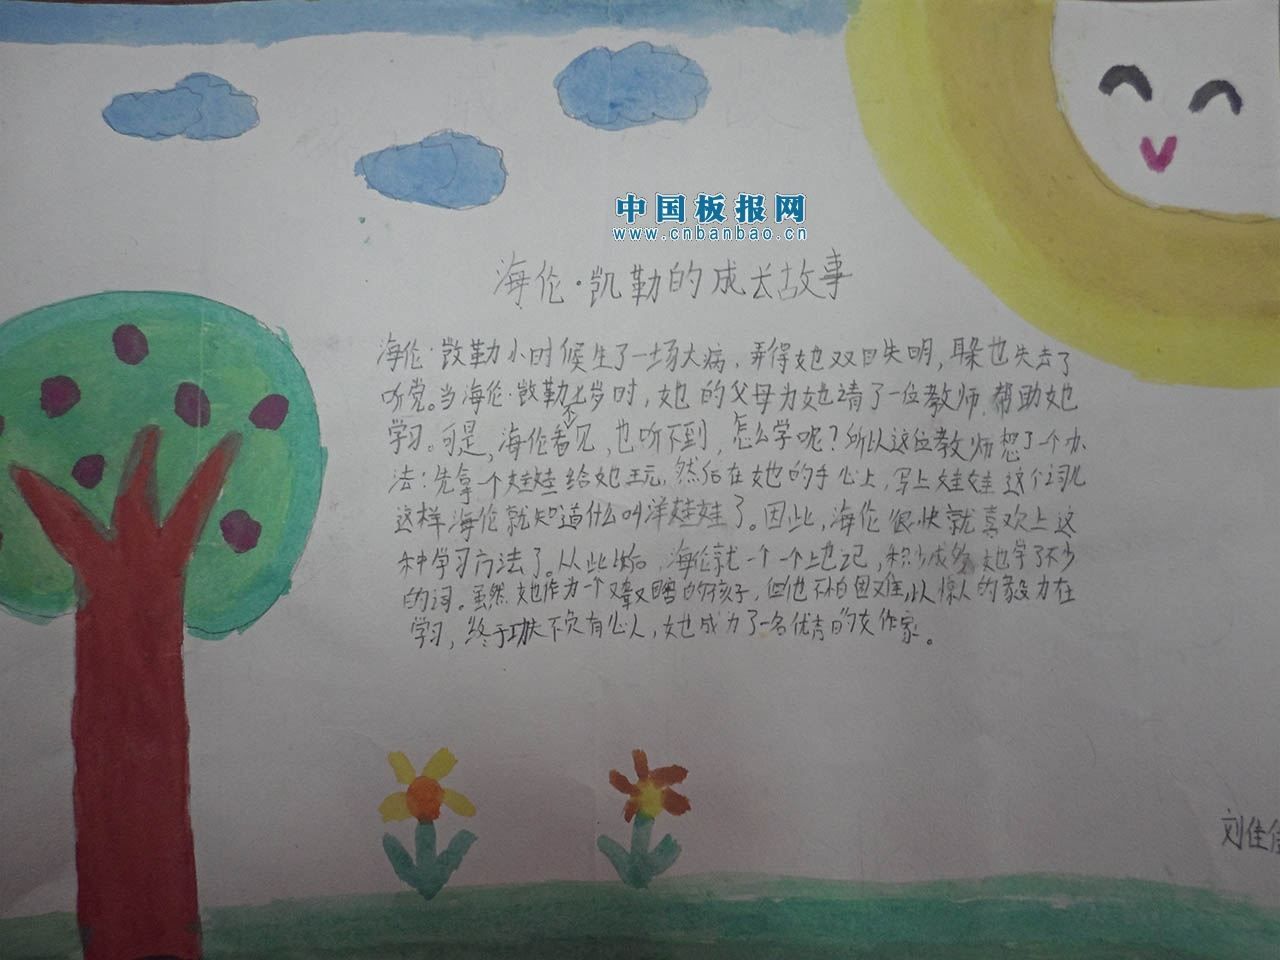 中国板报网
www.cnbanbao.cn
海伦·凯勒的成长故事
海伦·凯勒小时候生了一场大病，弄得她双目失明，耳朵也失去了
听觉。当海伦·凯勒七岁时，她的父母为她请了一位教师，帮助她
学习。可是，海伦看不见，也听不到，怎么学呢？所以这位教师想了一个办
法：先拿一个娃娃给她玩，然后在她的手心上，写上娃娃这个词儿
这样海伦就知道什么叫洋娃娃了。因此，海伦很快就喜欢上这
种学习方法了。从此以后，海伦就一个一个地记，积少成多，她学了不少
的词。虽然她作为一个又聋又瞎的孩子，但她不怕困难，以惊人的毅力在
学习，终于功夫不负有心人，她成为了一名优秀的女作家。
刘佳